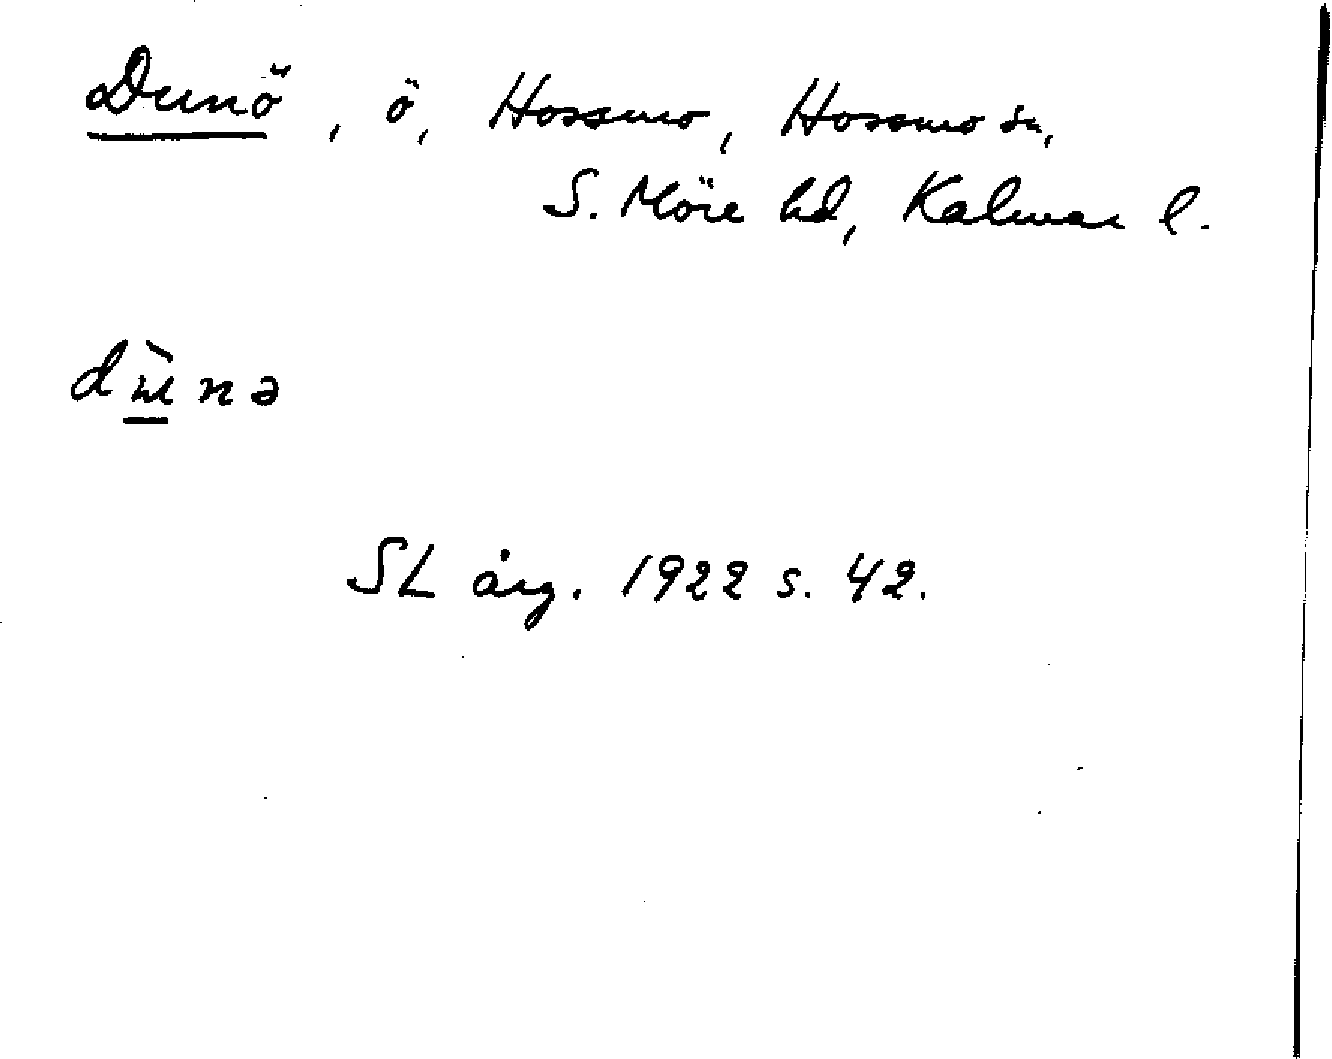 Dunö, ö, Hossmo, Hossmo sn,
S. Möre hd, Kalmar l.
dùnə
SL årg. 1922 s. 42.